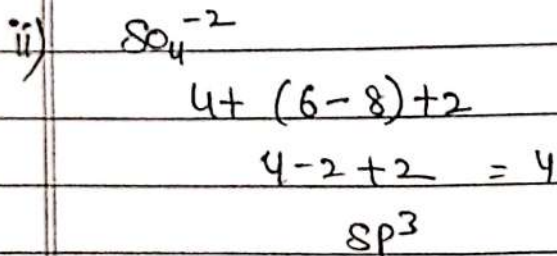 ii) SO₄⁻²
4+ (6-8)+2
4-2+2 = 4
sp³